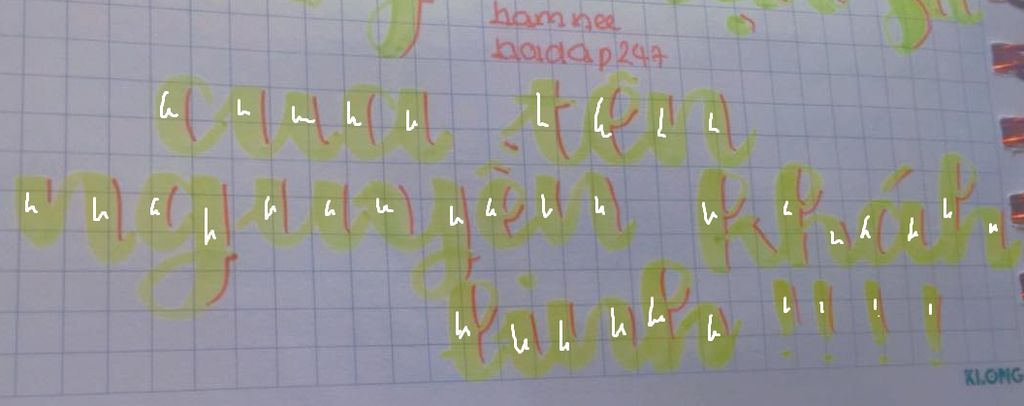 hamnee
hadap247
của tên
nguyên khánh
linh !!!!
KLONG